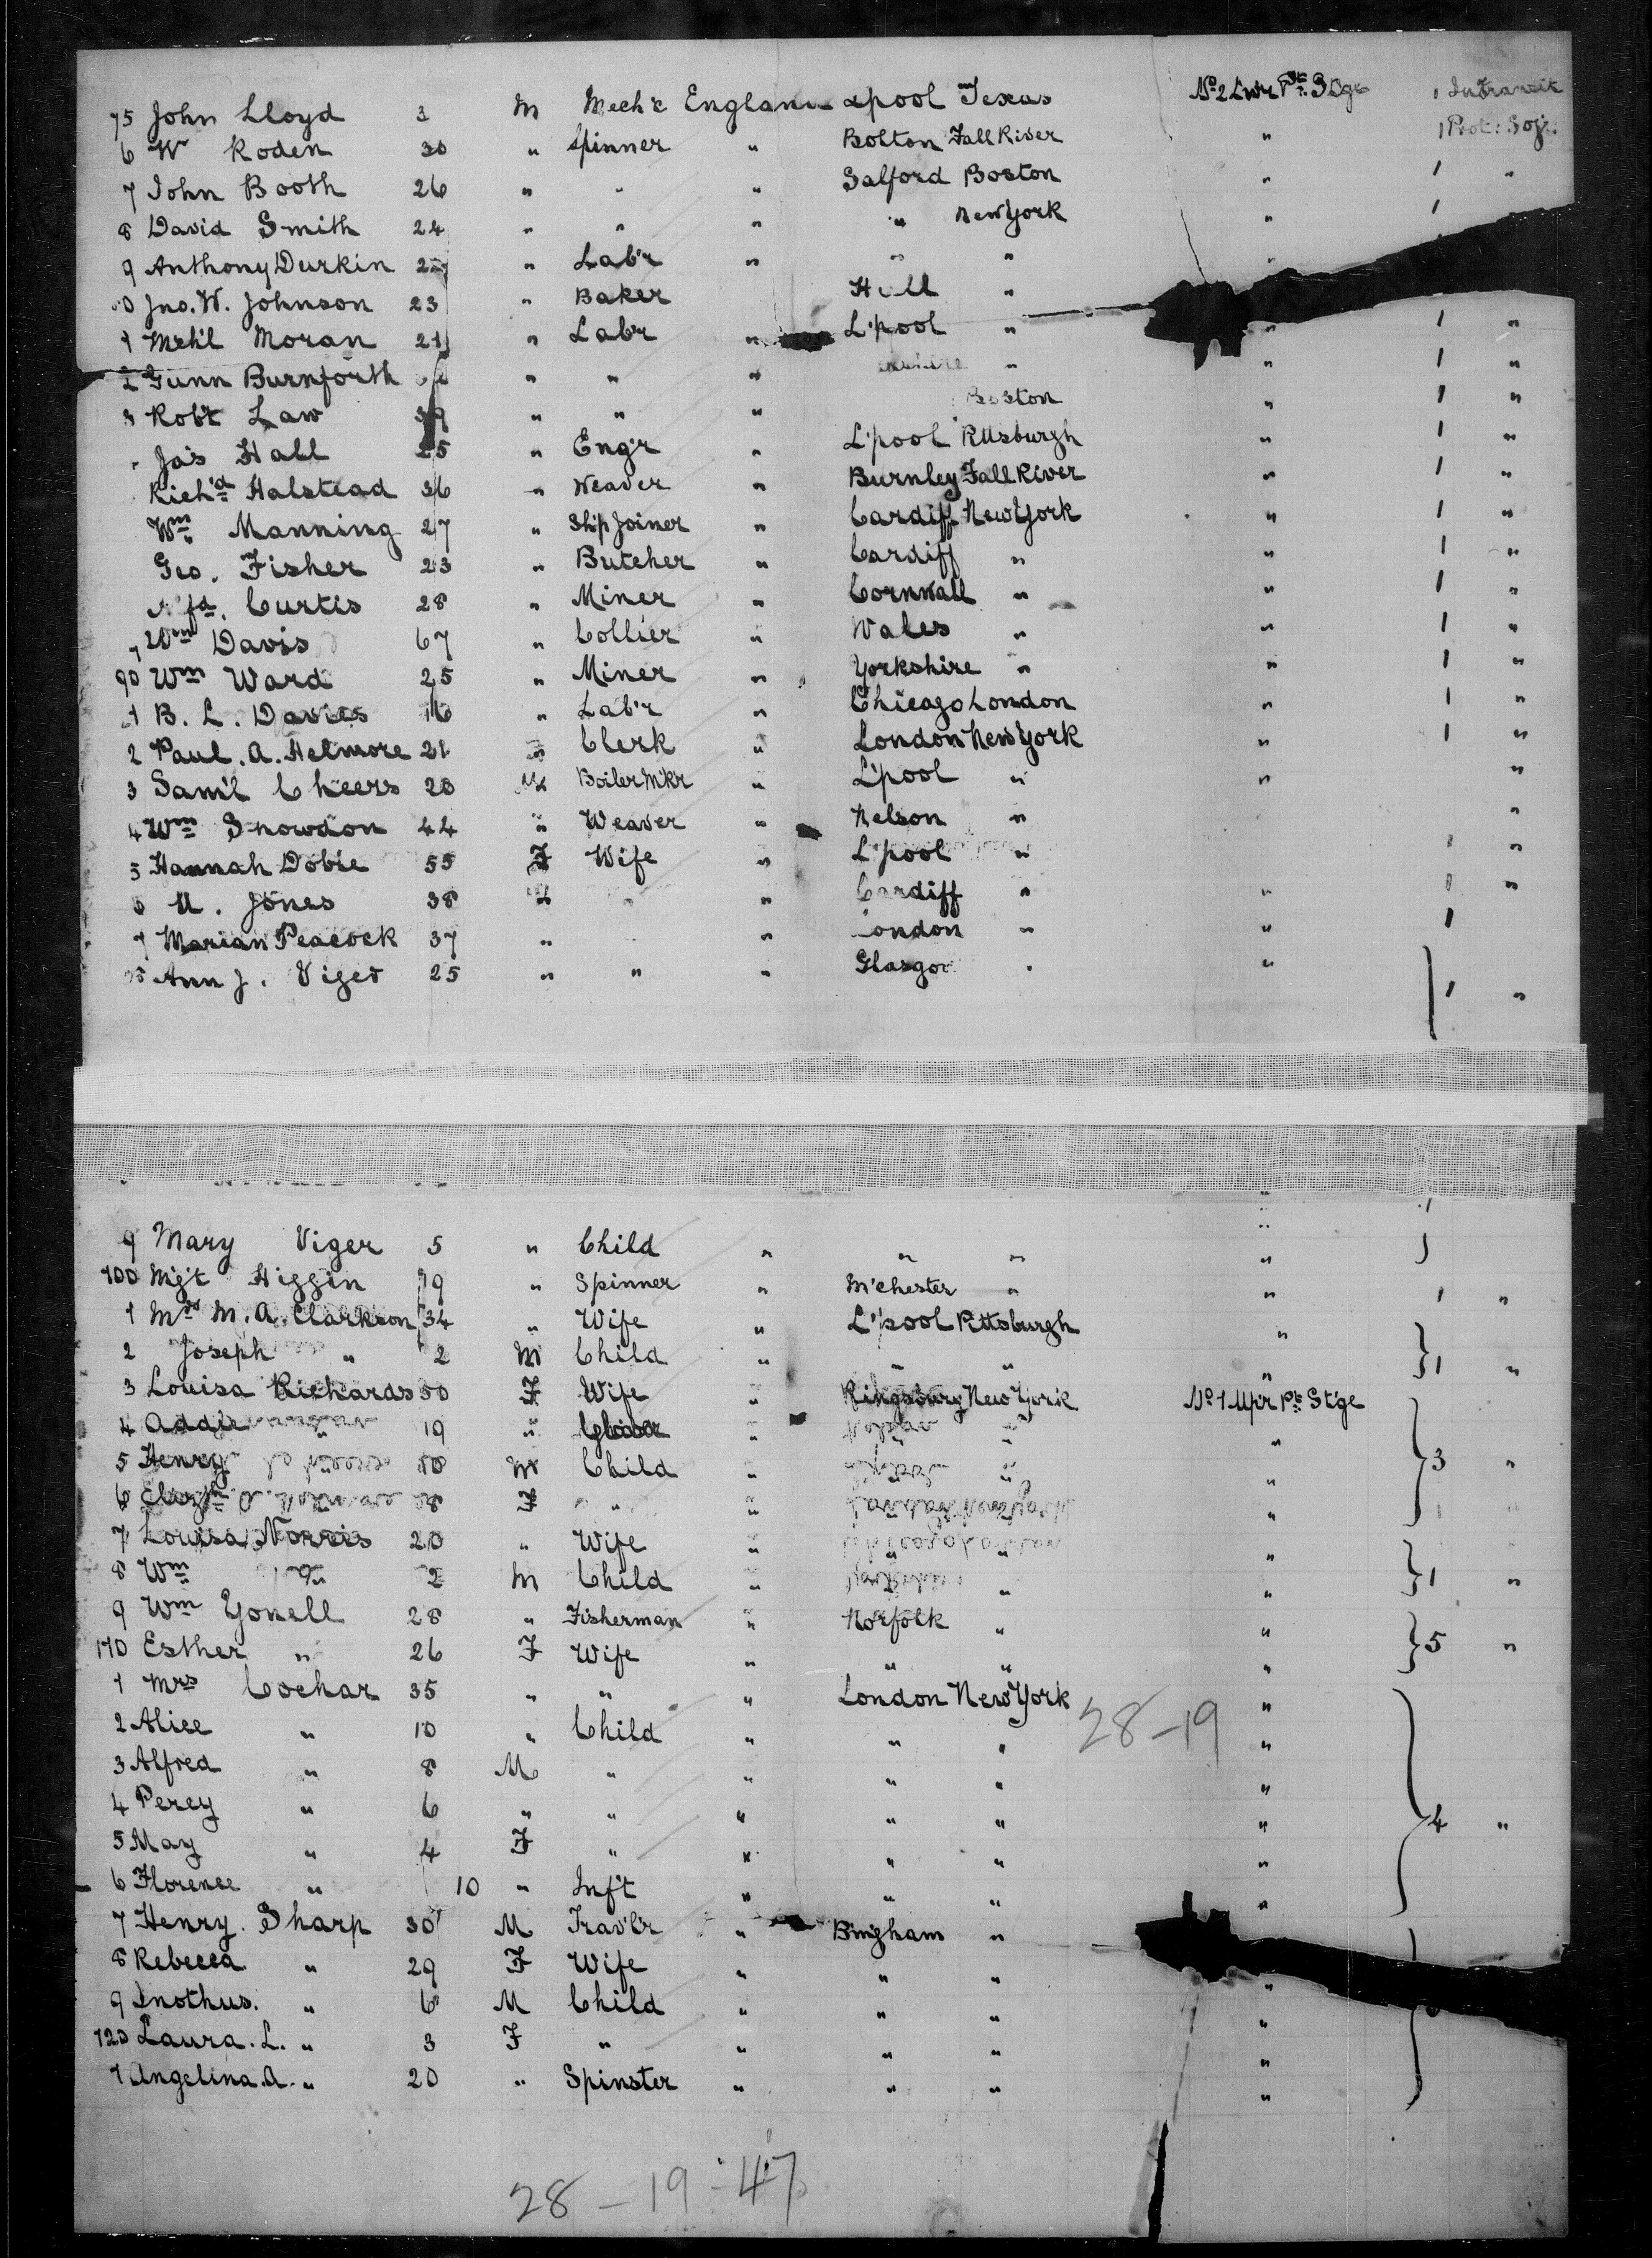 75 John Lloyd 3 M Mech'c England L'pool Texas No 2 Lwr Pt. S'Dge 1 In Transit
6 W Roden 30 " Spinner " Bolton Fall River " 1 Prot: Soj:
7 John Booth 26 " " " Salford Boston " 1 "
8 David Smith 24 " " " " New York " 1
9 Anthony Durkin 2 " Lab'r " " " "
0 Jno. W. Johnson 23 " Baker Hull "
1 Mch'l Moran 21 " Lab'r " L'pool " " 1 "
2 Gunn Burnforth " " " " " 1 "
3 Rob't Law 39 " " " Boston " 1 "
Jas Hall 25 " Eng'r " L'pool Pittsburgh " 1 "
Rich'd Halstead 36 " Weaver " Burnley Fall River " 1 "
Wm Manning 27 " Ship Joiner " Cardiff New York " 1 "
Geo. Fisher 23 " Butcher " Cardiff " " 1 "
Curtis 28 " Miner " Cornwall " " 1 "
Wm Davis 67 " Collier " Wales " " 1 "
90 Wm Ward 25 " Miner " Yorkshire " " 1 "
1 B. L. Davies 16 " Lab'r " Chicago London " 1 "
2 Paul. A. Helmore 21 " Clerk " London New York " 1 "
3 Sam'l Cheers 20 M Boiler M'kr " L'pool " " "
4 Wm Snowdon 44 " Weaver " Nelson " "
5 Hannah Dobie 55 F Wife " L'pool " 1 "
6 M. Jones 38 " " Cardiff " " 1 "
7 Marian Peacock 37 " " London " " 1
Ann J. Viger 25 " " " Glasgow " " 1 "
9 Mary Viger 5 " Child " " " "
100 Mgt Higgin 19 " Spinner " M'chester " " 1 "
1 Mrs M. A. Clarkson 34 " Wife " L'pool Pittsburgh "
2 Joseph " 2 M Child " " " " 1 "
3 Louisa Richards 50 F Wife " Kingsbury New York No 1 Up'r Pt St'ge
4 Addie " 19 " " " "
5 Henry 10 M Child " " " 3 "
6 8 F " " "
7 Louisa Norris 20 " Wife " " "
8 Wm " 2 M Child " " " 1 "
9 Wm Yonell 28 " Fisherman " Norfolk " "
110 Esther " 26 F Wife " " " " 5 "
1 Mrs Cochar 35 " " " London New York "
2 Alice " 10 " Child " " " 28-19 "
3 Alfred " 8 M " " " " "
4 Percy " 6 " " " " " " 4 "
5 May " 4 F " " " " "
6 Florence " 10 " Inf't " " " "
7 Henry. Sharp 30 M Trav'l'r " Bingham "
8 Rebecca " 29 F Wife " " " "
9 " 6 M Child " " " "
120 Laura. L. " 3 F " " " " "
1 Angelina. A. " 20 " Spinster " " " "
28-19-47